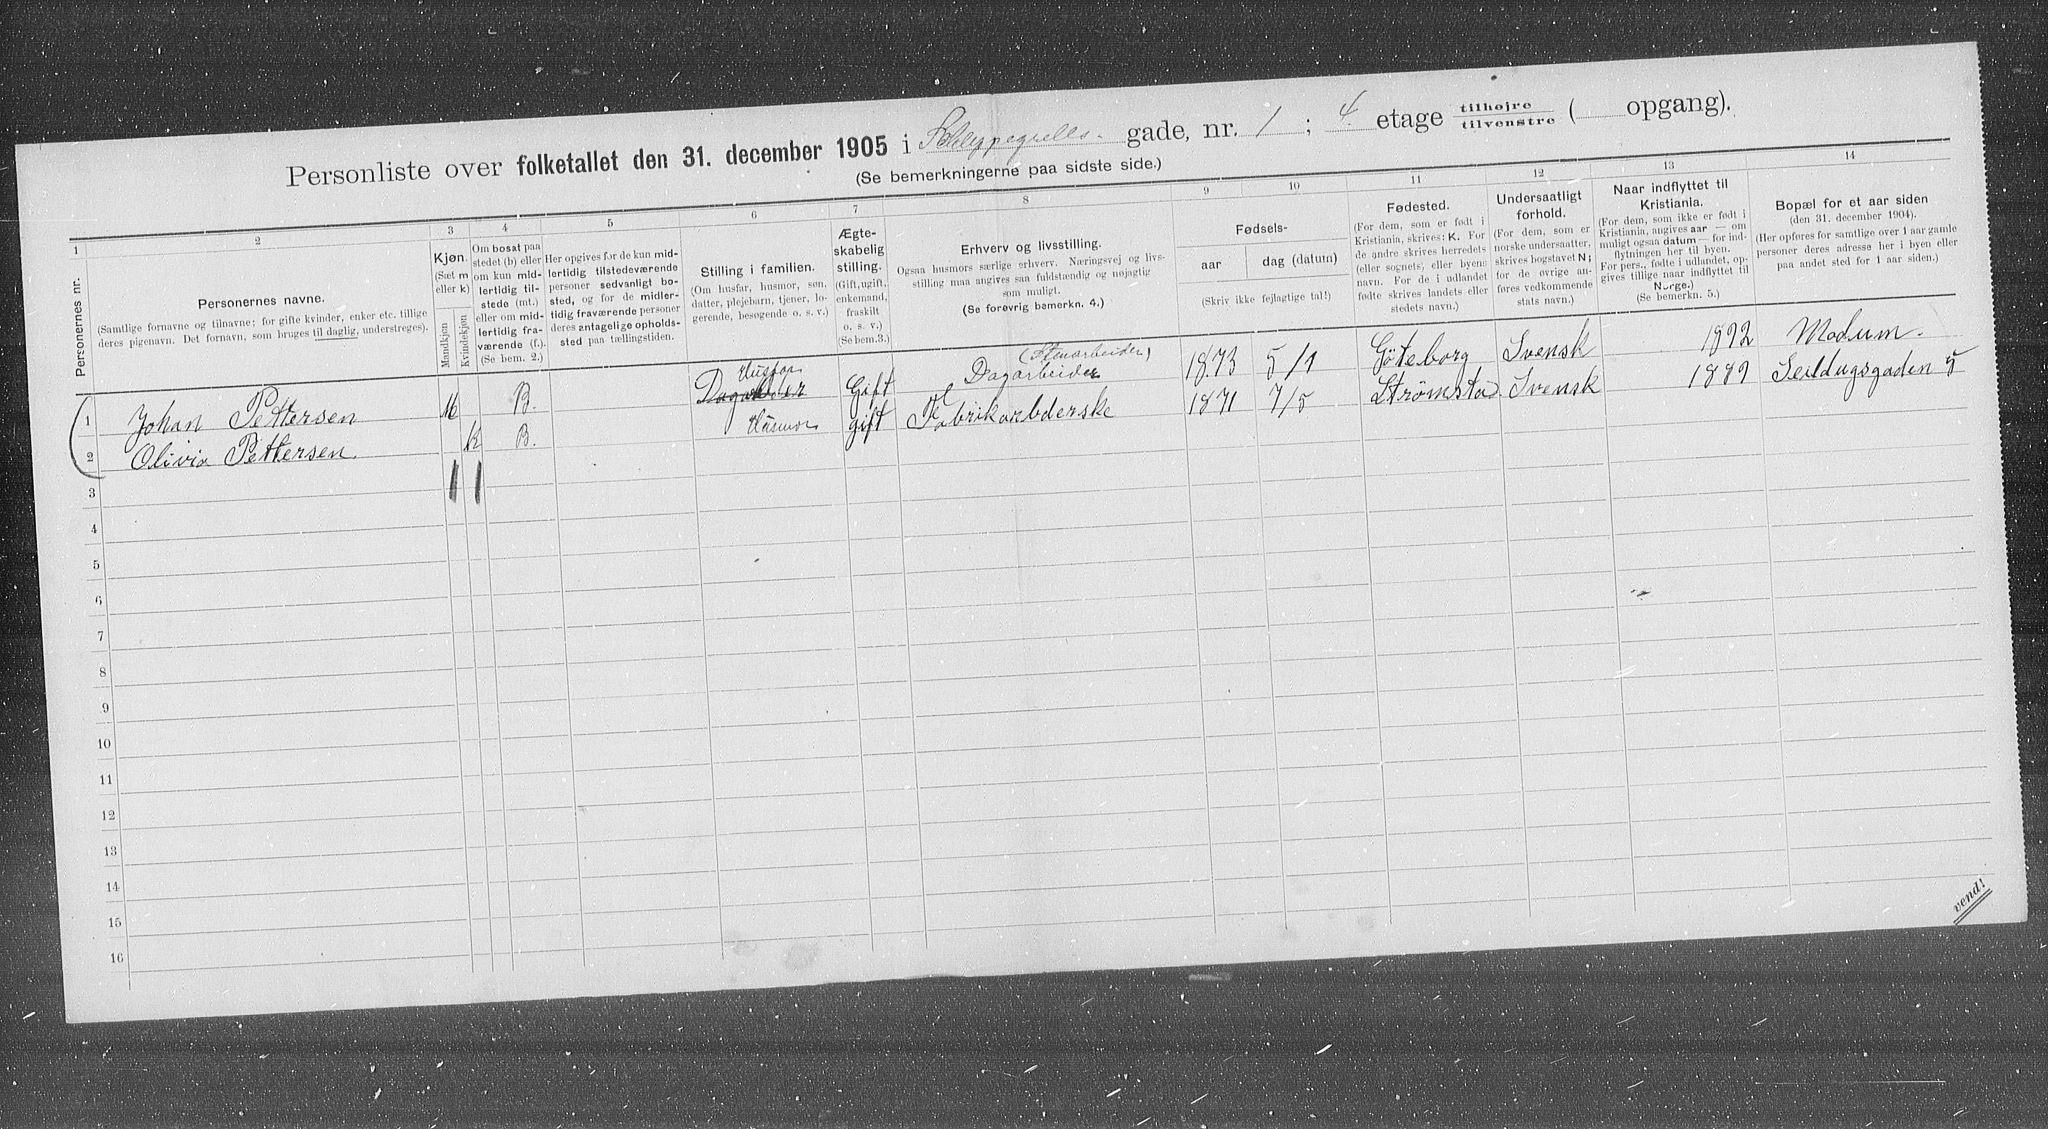 Personliste over folketallet den 31. december 1905 i Schleppegrells- gade, nr. 1 ; 4. etage tilhøjre / tilvenstre ( opgang).
(Se bemerkningerne paa sidste side.)
1 2 3 4 5 6 7 8 9 10 11 12 13 14
Personernes nr.
Personernes navne.
(Samtlige fornavne og tilnavne; for gifte kvinder, enker etc. tillige
deres pigenavn. Det fornavn, som bruges til daglig, understreges).
Kjøn.
(Sæt m
eller k)
Mandkjøn
Kvindekjøn
Om bosat paa
stedet (b) eller
om kun mid-
lertidig til-
stede (mt.)
eller om mid-
lertidig fra-
værende (f.).
(Se bem. 2.)
Her opgives for de kun mid-
lertidig tilstedeværende
personer sedvanligt bo-
sted, og for de midler-
tidig fraværende personer
deres antagelige opholds-
sted paa tællingstiden.
Stilling i familien.
(Om husfar, husmor, søn,
datter, plejebarn, tjener, lo-
gerende, besøgende o. s. v.)
Ægte-
skabelig
stilling.
(Gift, ugift,
enkemand,
fraskilt
o. s. v.)
(Se bem.3.)
Erhverv og livsstilling.
Ogsaa husmors særlige erhverv. Næringsvej og livs-
stilling maa angives saa fuldstændig og nøjagtig
som muligt.
(Se forøvrig bemerkn. 4.)
Fødsels-
aar
dag (datum)
(Skriv ikke fejlagtige tal!)
Fødested.
(For dem, som er født i
Kristiania, skrives: K. For
de andre skrives herredets
(eller sognets) eller byens
navn. For de i udlandet
fødte skrives landets eller
stedets navn.)
Undersaatligt
forhold.
(For dem, som er
norske undersaatter,
skrives bogstavet N;
for de øvrige an-
føres vedkommende
stats navn.)
Naar indflyttet til
Kristiania.
(For dem, som ikke er født i
Kristiania, angives aar — om
muligt ogsaa datum — for ind-
flytningen her til byen.
For pers., fødte i udlandet, op-
gives tillige naar indflyttet til
Norge.)
(Se bemerkn. 5.)
Bopæl for et aar siden
(den 31. december 1904).
(Her opføres for samtlige over 1 aar gamle
personer deres adresse her i byen eller
paa andet sted for 1 aar siden.)
Husfar (Stenarbeider)
1 Johan Pettersen M B. Gift Dagarbeider 1873 5/1 Göteborg Svensk 1892 Modum.
2 Olivia Pettersen k B. Husmor gift Fabrikarbderske 1871 7/5 Strømstad Svensk 1889 Seildugsgaden 5
3
4
5
6
7
8
9
10
11
12
13
14
15
16
vend!